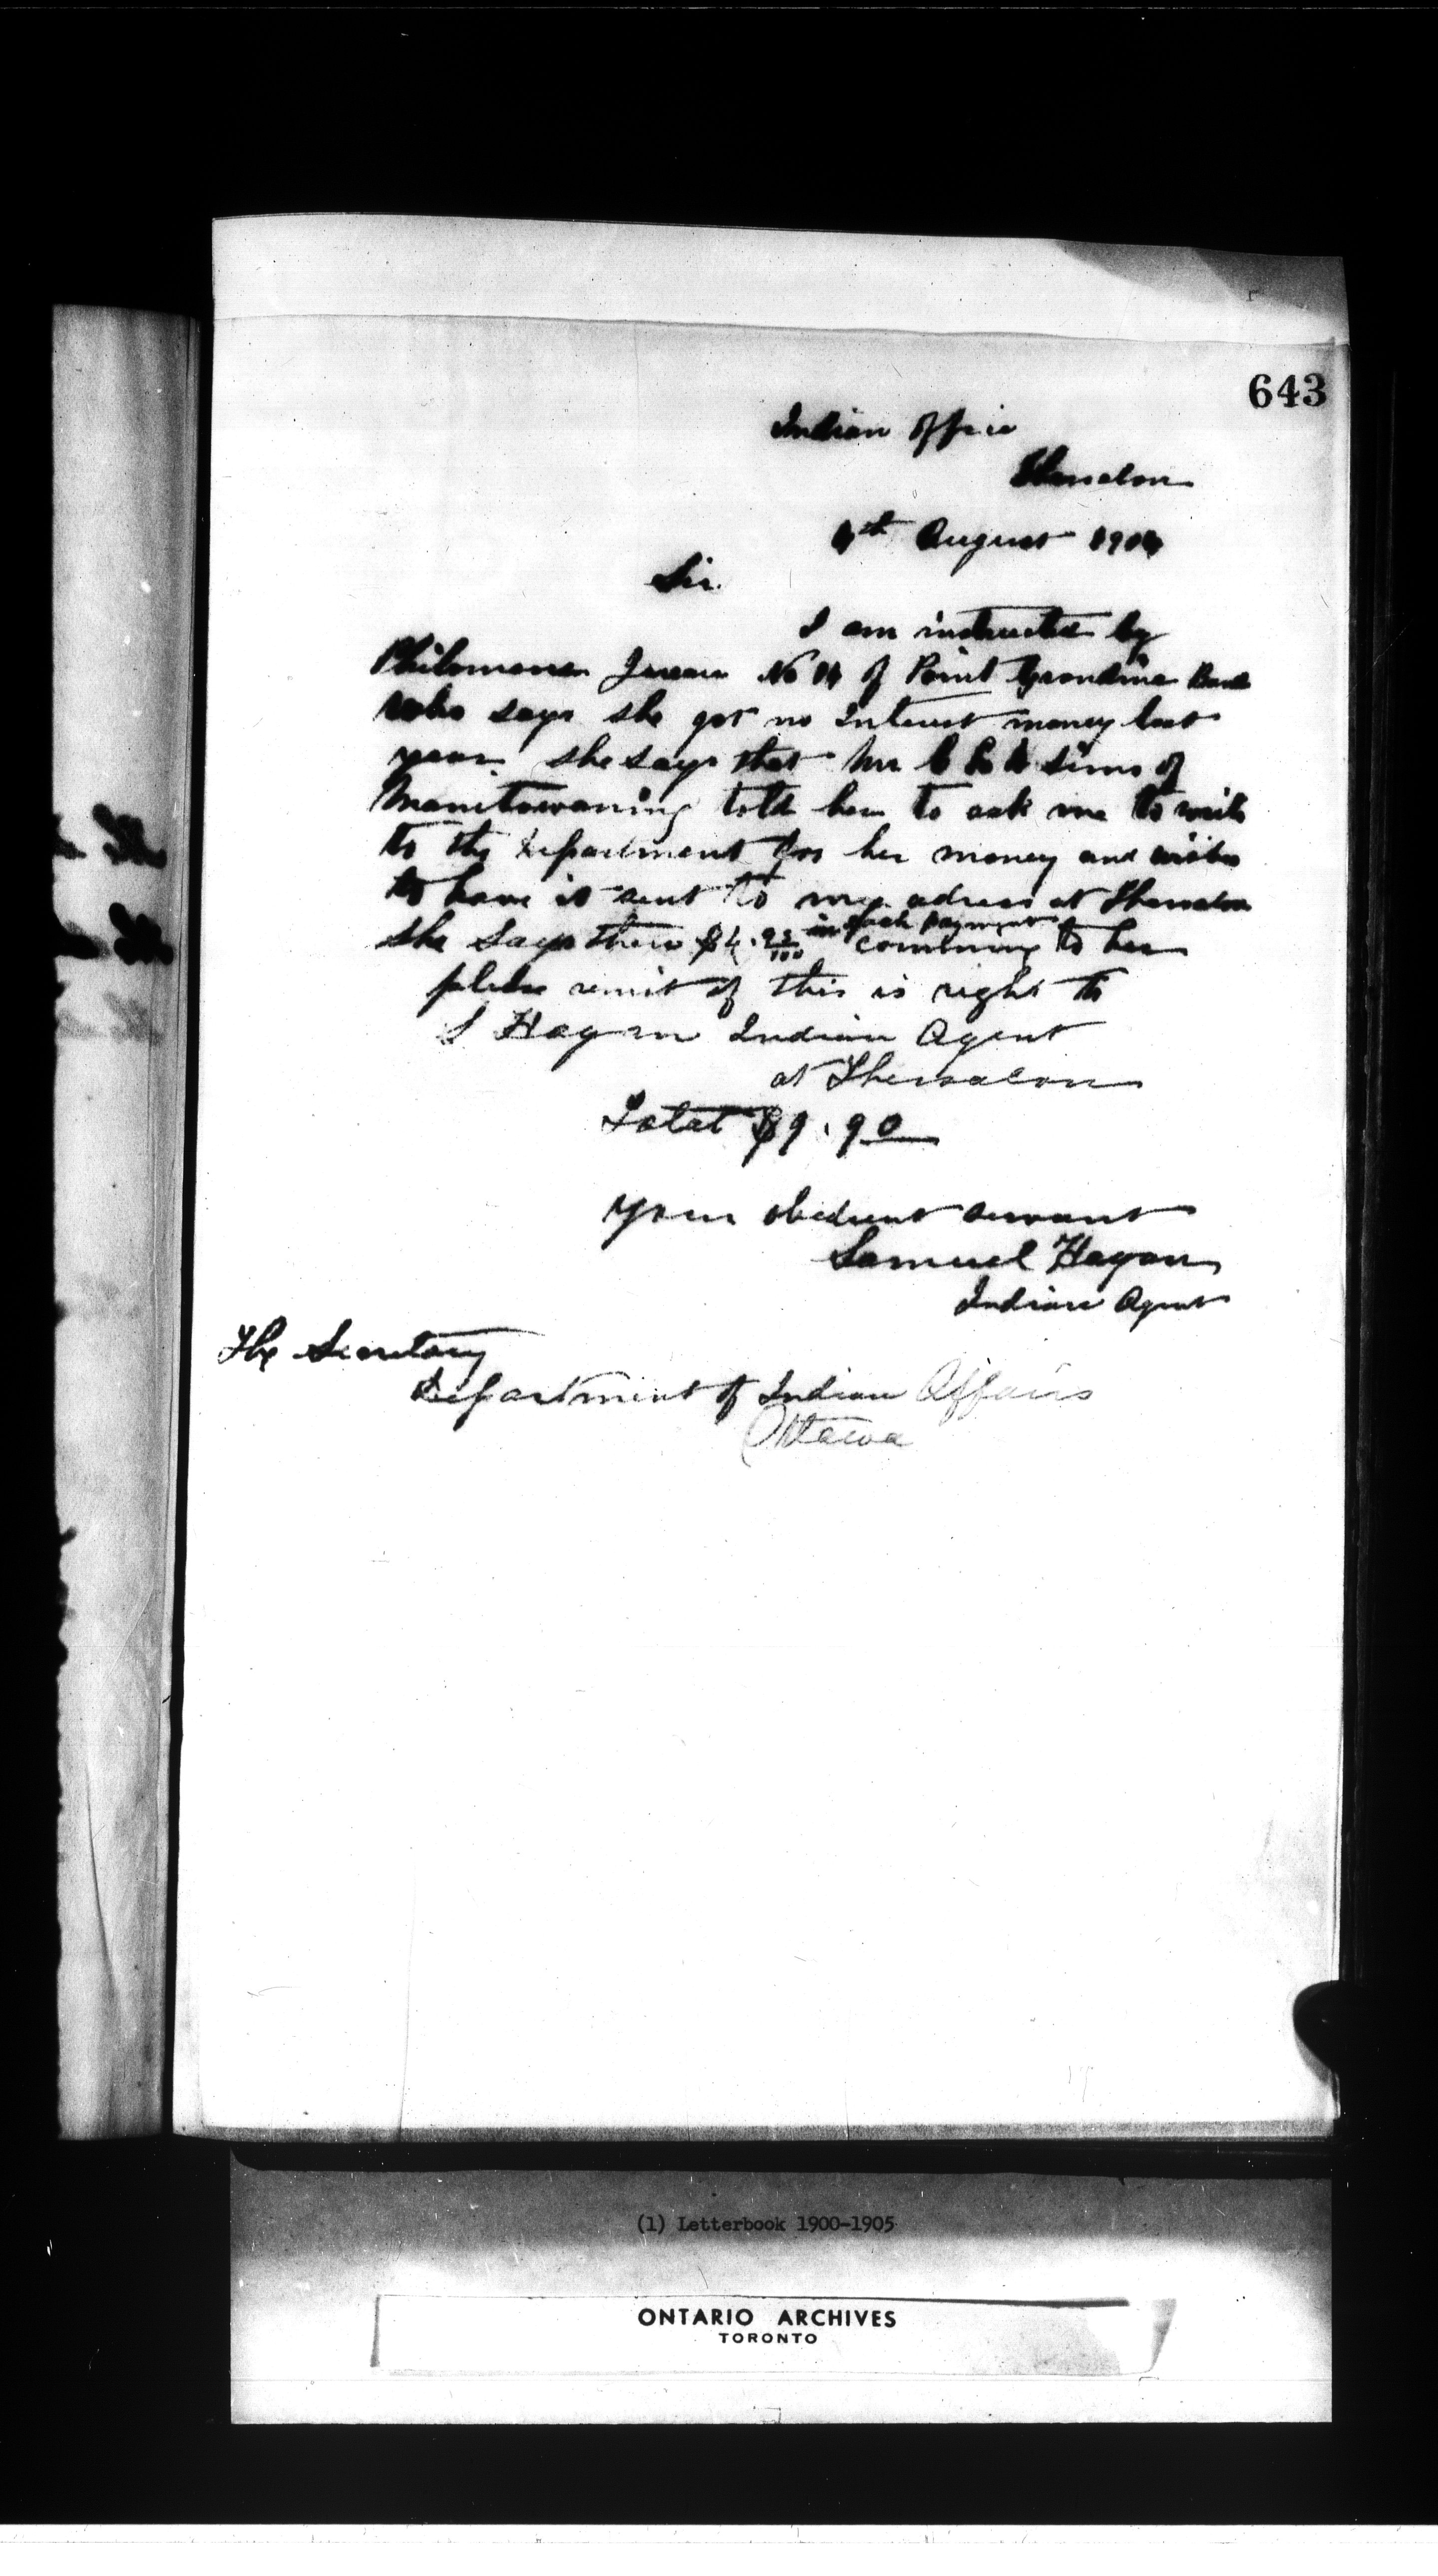 643
Indian Office
Thessalon
4th August 1904
Sir.
I am instructed by
Philomena No 14 of Point Grondine Band
who says she got no interest money last
year. she says that Mr C L D Sims of
Manitowaning told her to ask me to write
to the Department for her money and wishes
to have it sent to my adress at Thessalon
in each payment
she says there $4.95/100 comming to her
please remit if this is right to
S Hagan Indian Agent
at Thessalon
Total $9.90
Your obedient servant
Samuel Hagan
Indian Agent
The Secretary
Department of Indian Affairs
Ottawa
(1) Letterbook 1900-1905
ONTARIO ARCHIVES
TORONTO